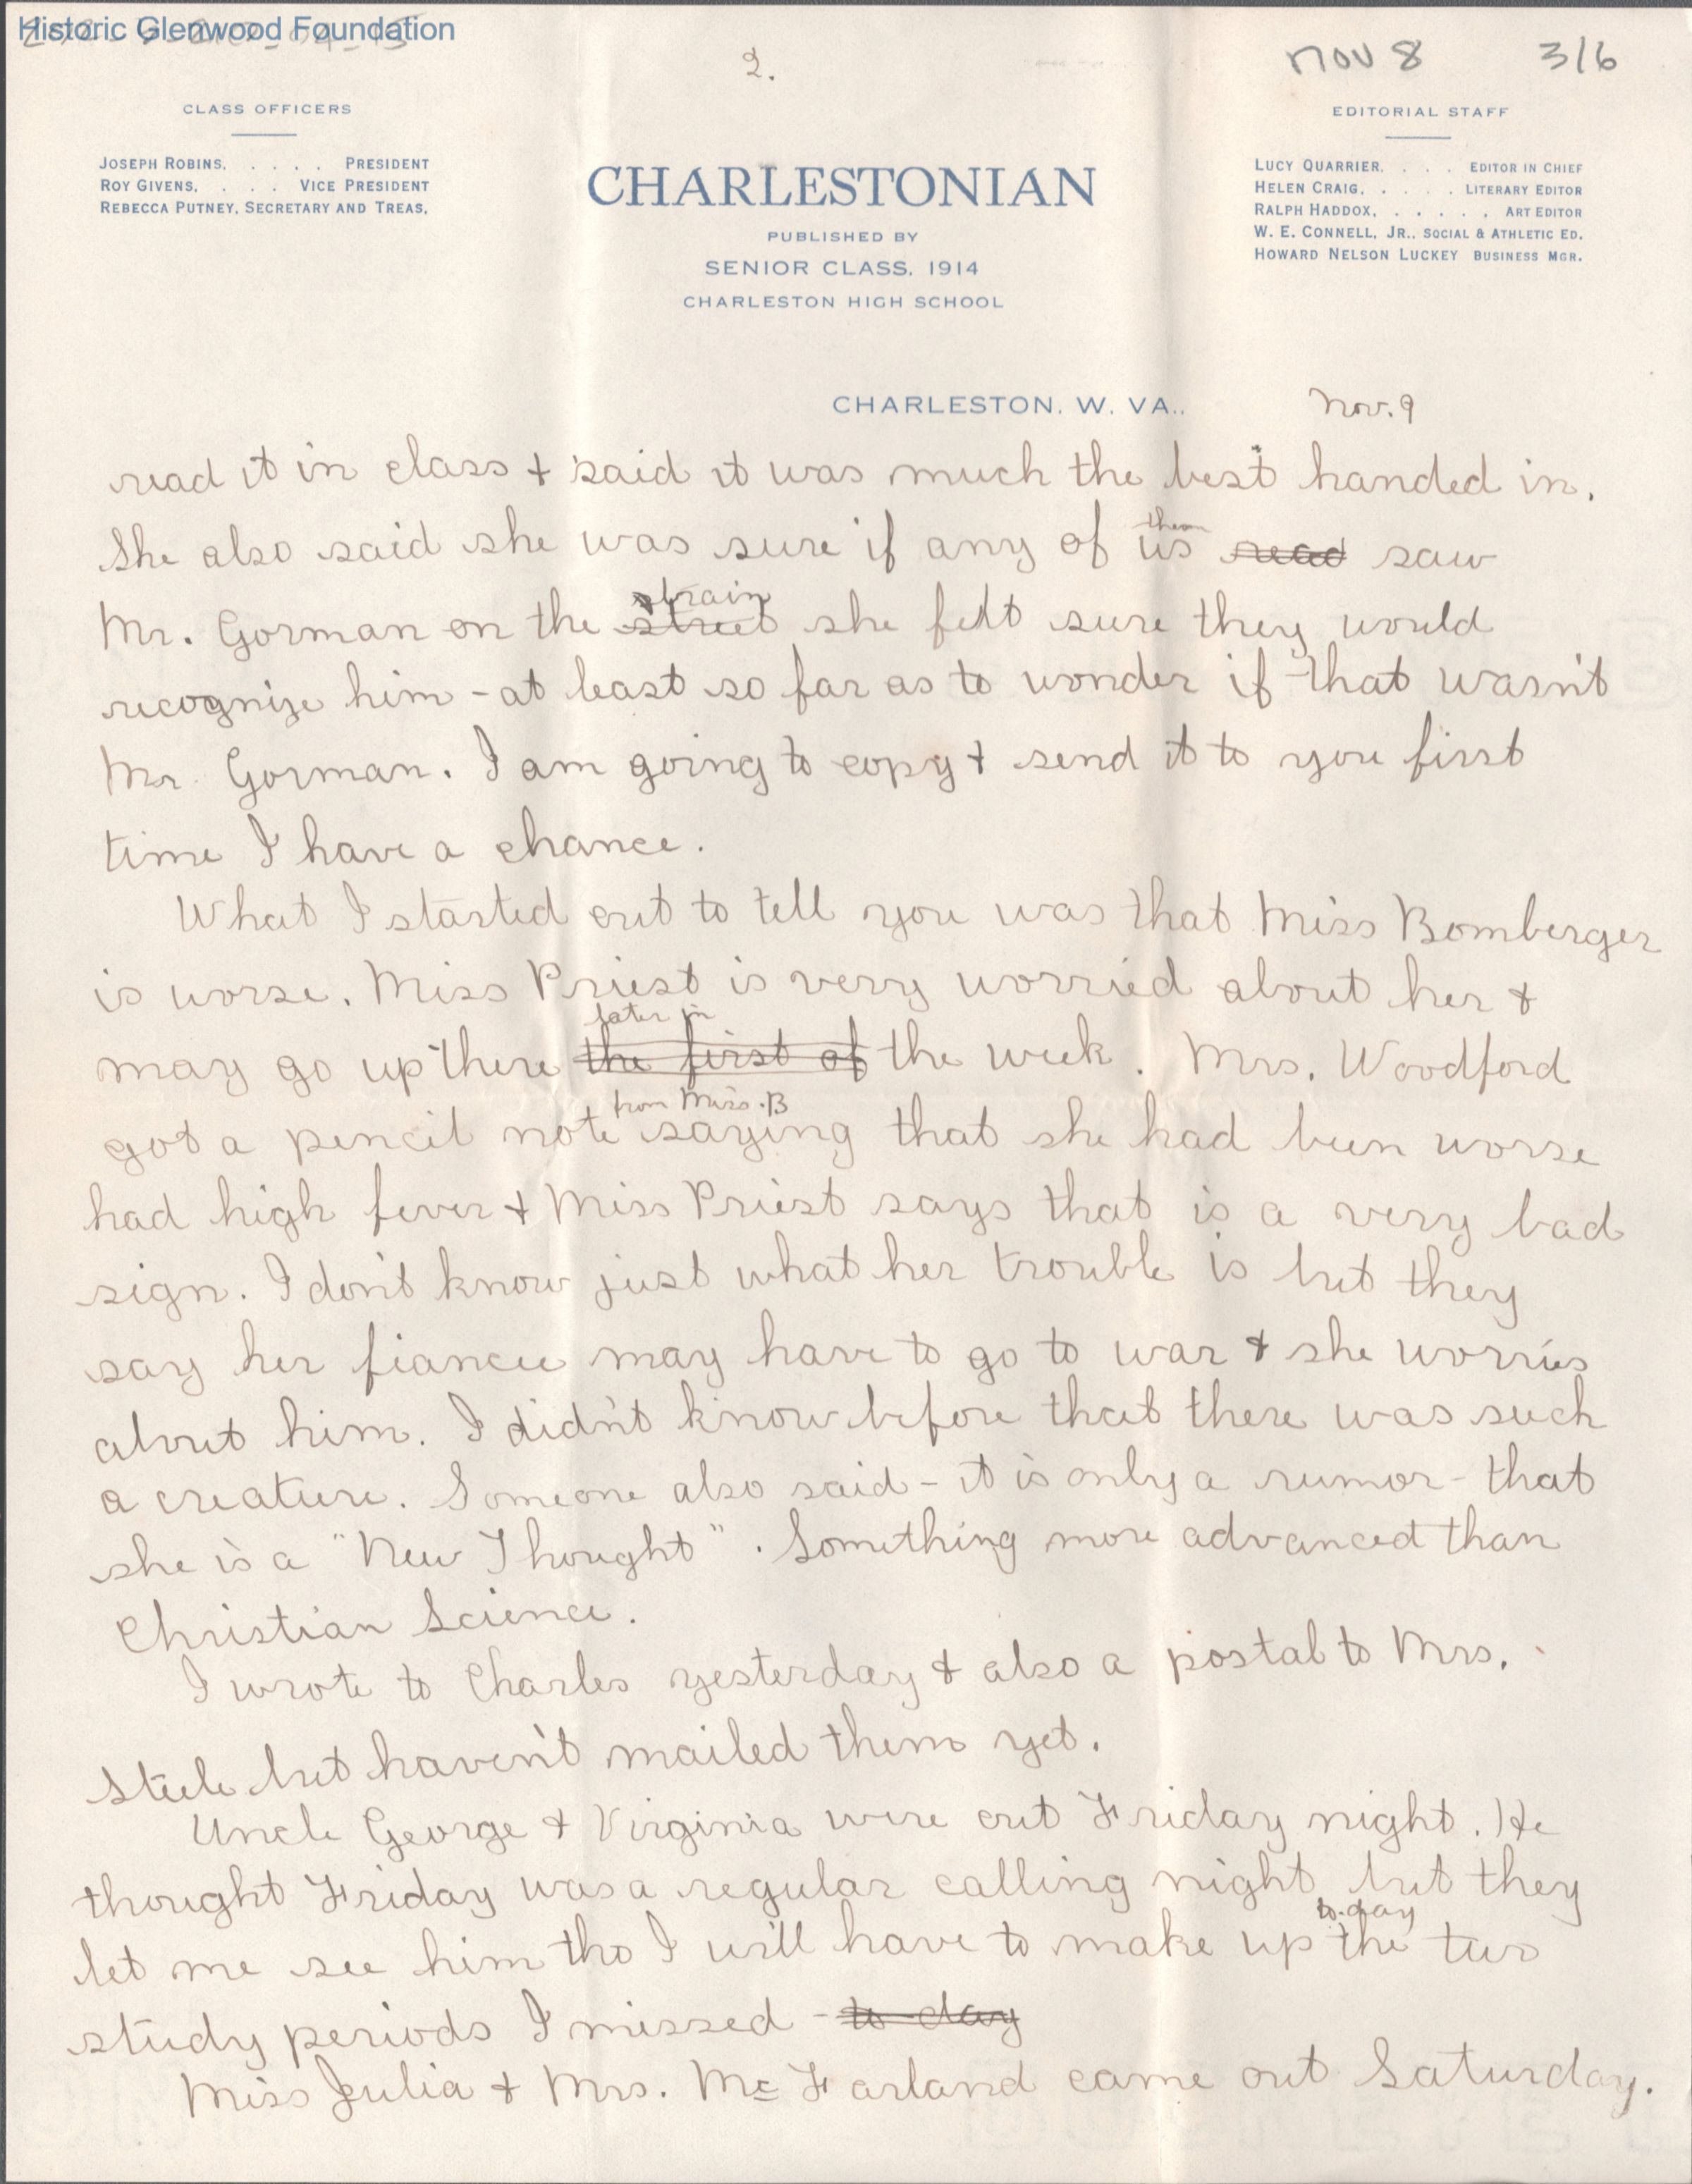 Historic Glenwood Foundation
2.
Nov 8 316
CLASS OFFICERS
JOSEPH ROBINS, . . . . PRESIDENT
ROY GIVENS, . . . VICE PRESIDENT
REBECCA PUTNEY, SECRETARY AND TREAS.
CHARLESTONIAN
PUBLISHED BY
SENIOR CLASS, 1914
CHARLESTON HIGH SCHOOL
EDITORIAL STAFF
LUCY QUARRIER, . . . EDITOR IN CHIEF
HELEN CRAIG, . . . . . LITERARY EDITOR
RALPH HADDOX, . . . . . , ART EDITOR
W. E. CONNELL, JR., SOCIAL & ATHLETIC ED.
HOWARD NELSON LUCKEY BUSINESS MGR.
CHARLESTON, W. VA., Nov. 9
read it in class & said it was much the best handed in.
She also said she was sure if any of us them read saw
Mr. Gorman on the street train she felt sure they would
recognize him - at least so far as to wonder if that wasn't
Mr. Gorman. I am going to copy & send it to you first
time I have a chance.
What I started out to tell you was that Miss Bomberger
is worse. Miss Priest is very worried about her &
may go up there the first of later in the week. Mrs. Woodford
got a pencil note from Miss. B saying that she had been worse
had high fever & Miss Priest says that is a very bad
sign. I don't know just what her trouble is but they
say her fiancee may have to go to war & she worries
about him. I didn't know before that there was such
a creature. Someone also said - it is only a rumor - that
she is a "New Thought". Something more advanced than
Christian Science.
I wrote to Charles yesterday & also a postal to Mrs.
Steele but haven't mailed them yet.
Uncle George & Virginia were out Friday night. He
thought Friday was a regular calling night but they
let me see him tho I will have to make up to-day the two
study periods I missed - to-day
Miss Julia & Mrs. McFarland came out Saturday.